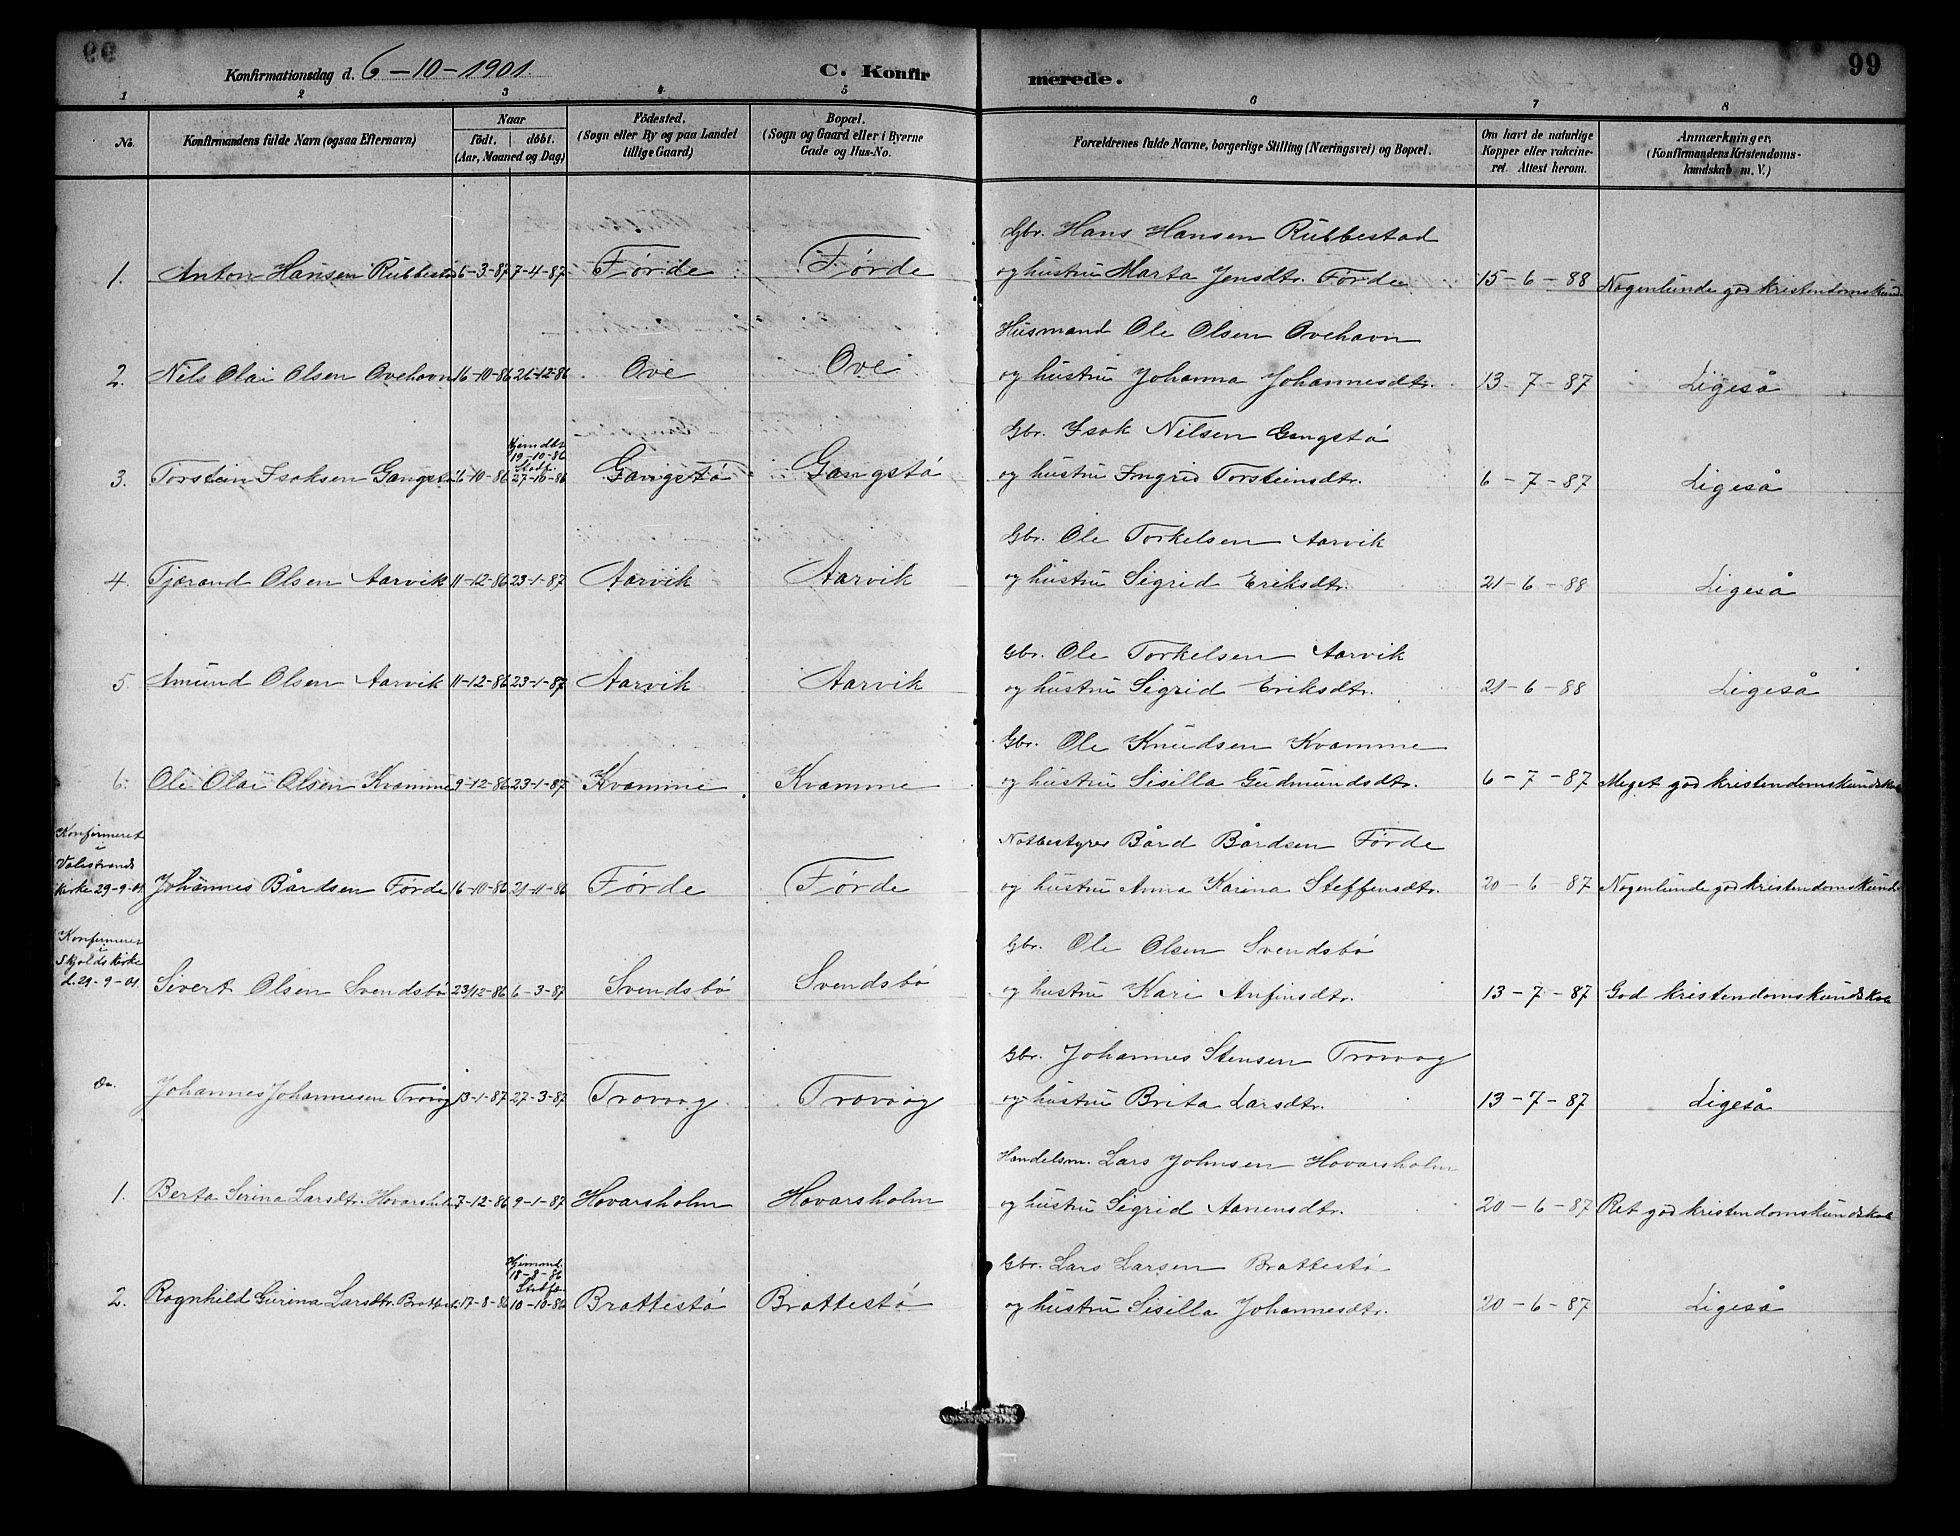 99
Konfirmationsdag d. 6-10-1901. C. Konfirmerede. 99
1 2 3 4 5 6 7 8
No. Konfirmandens fulde Navn (ogsaa Efternavn) Naar födt. döbt. (Aar, Maaned og Dag) Födested. (Sogn eller By og paa Landet tillige Gaard) Bopæl. (Sogn og Gaard eller i Byerne Gade og Hus-No. Forældrenes fulde Navne, borgerlige Stilling (Næringsvei) og Bopæl. Om havt de naturlige Kopper eller vakcineret. Attest herom. Anmærkninger, (Konfirmandens Kristendomskundskab m. V.)
Gbr. Hans Hansen Rubbestad
1. Anton Hansen Rubbesta 6-3-87 7-4-87 Förde Förde og hustru Marta Jensdtr. Förde 15-6-88 Nogenlunde god kristendomskund
Husmand Ole Olsen Ovehavn
2. Nils Olai Olsen Ovehavn 16-10-86 26-12-86 Ove Ove og hustru Johanna Johannesdtr. 13-7-87 Ligeså
Gbr. Isak Nilsen Gangstö
Hjemdbt. 19-10-86 Stadf.
3. Torstein Isaksen Gangst 6-10-86 27-10-86 Gangstö Gangstö og hustru Ingrid Torsteinsdtr. 6-7-87 Ligeså
Gbr. Ole Torkelsen Aarvik
4. Tjærand Olsen Aarvik 11-12-86 23-1-87 Aarvik Aarvik og hustru Sigrid Eriksdtr. 21-6-88 Ligeså
Gbr. Ole Torkelsen Aarvik
5. Amund Olsen Aarvik 11-12-86 23-1-87 Aarvik Aarvik og hustru Sigrid Eriksdtr. 21-6-88 Ligeså
Gbr. Ole Knudsen Kvamme
6. Ole Olai Olsen Kvamme 9-12-86 23-1-87 Kvamme Kvamme og hustru Sisilla Gudmundsdtr. 6-7-87 Meget god kristendomskundskab
Konfirmeret i Valestrands
Notbestyrer Bård Bårdsen Förde
kirke 29-9-01 Johannes Bårdsen Förde 16-10-86 21-11-86 Förde Förde og hustru Anna Karina Steffensdtr. 20-6-87 Nogenlunde god kristendomskund
Konfirmeret i Skjolds kirke
Gbr. Ole Olsen Svendsbö
d. 29-9-01. Sivert Olsen Svendsbö 23/12-86 6-3-87 Svendsbö Svendsbö og hustru Kari Anfinsdtr. 13-7-87 God kristendomskundskab
Gbr. Johannes Stensen Trovaag
Do. Johannes Johannesen Tråvåg 13-1-87 27-3-87 Trovaag Trovaag og hustru Brita Larsdtr. 13-7-87 Ligeså
Handelsm. Lars Johnsen Hovarsholm
1. Berta Serina Larsdtr. Hovarshol 7-12-86 9-1-87 Hovarsholm Hovarsholm og hustru Sigrid Aanensdtr. 20-6-87 Ret god kristendomskundskab
Hjemmed. 18-8-86 Stadf.
Gbr. Lars Larsen Brattestö
2. Ragnhild Gurina Larsdtr. Brattest 17-8-86 10-10-86 Brattestö Brattestö og hustru Sisilla Johannesdtr. 20-6-87 Ligeså